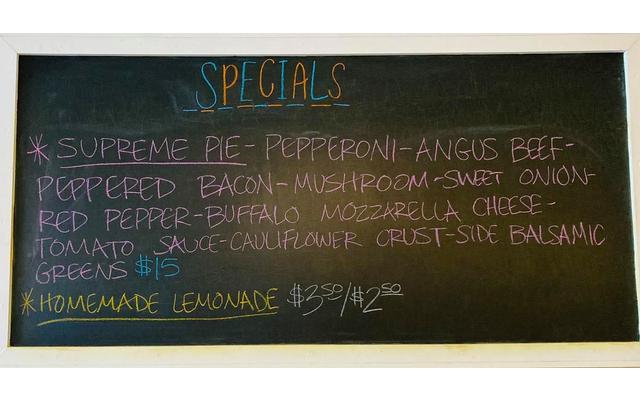 SPECIALS
* SUPREME PIE - PEPPERONI - ANGUS BEEF -
PEPPERED BACON - MUSHROOM - SWEET ONION -
RED PEPPER - BUFFALO MOZZARELLA CHEESE -
TOMATO SAUCE - CAULIFLOWER CRUST - SIDE BALSAMIC
GREENS $15
* HOMEMADE LEMONADE $3.50/$2.50